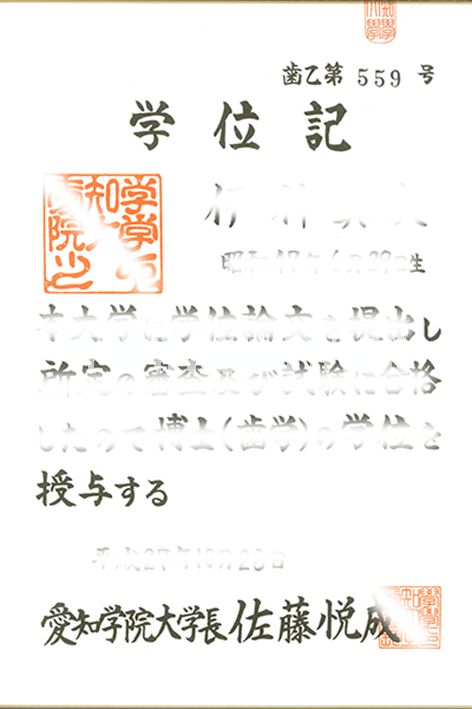 歯乙第 559 号
学位記
昭和 年 月29日生
本大学に学位論文を提出し
所定の審査及び試験に合格
したので博士(歯学)の学位を
授与する
平成27年10月28日
愛知学院大学長 佐藤悦成